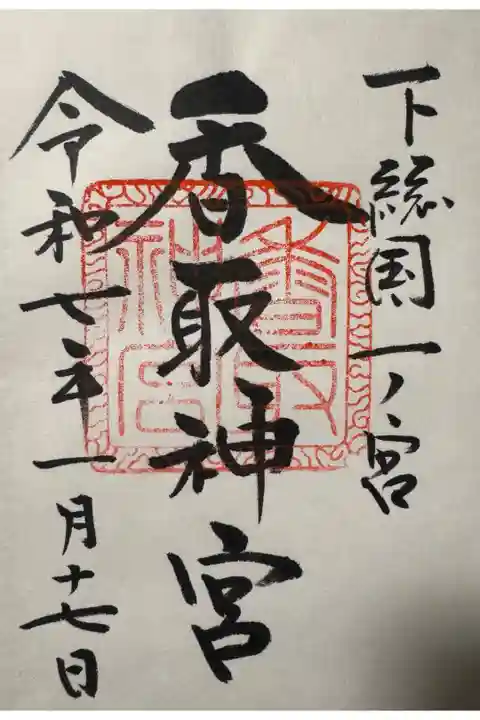 下総国一ノ宮
香取神宮
令和七年一月十七日
香取
神宮